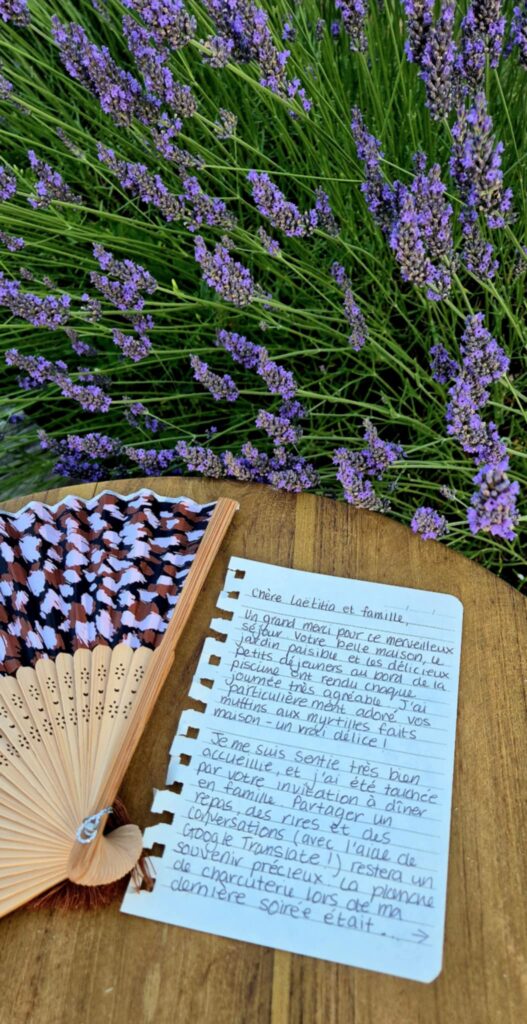 Chère Laëtitia et famille,
Un grand merci pour ce merveilleux
séjour. Votre belle maison, le
jardin paisible et les délicieux
petits déjeuners au bord de la
piscine ont rendu chaque
journée très agréable. J'ai
particulièrement adoré vos
muffins aux myrtilles faits
maison - un vrai délice !
Je me suis sentie très bien
accueillie, et j'ai été touchée
par votre invitation à dîner
en famille. Partager un
repas, des rires et des
conversations (avec l'aide de
Google Translate !) restera un
souvenir précieux. La planche
de charcuterie lors de ma
dernière soirée était... →